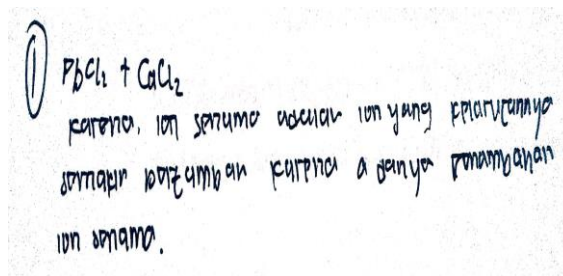 ①
PbCl₂ + CaCl₂
karena, ion senama adalah ion yang kelarutannya
semakin karena adanya penambahan
ion senama.